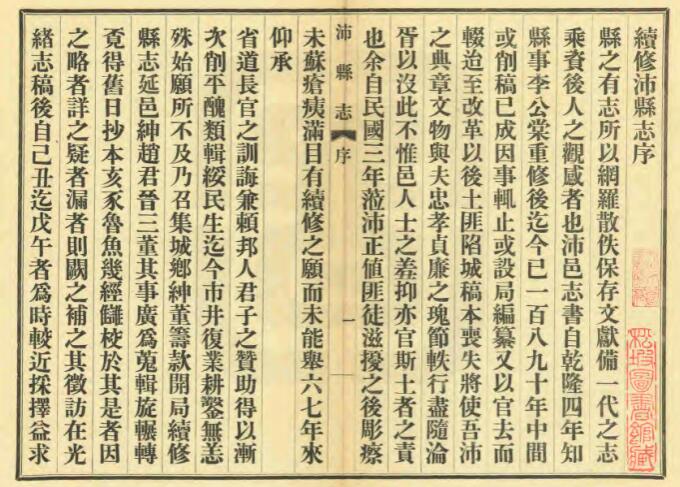 續修沛縣志序
縣之有志所以網羅散佚保存文獻備一代之志
乘資後人之觀感者也沛邑志書自乾隆四年知
縣事李公棠重修後迄今已一百八九十年中間
或創稿已成因事輒止或設局編纂又以官去而
輟迨至改革以後土匪陷城稿本喪失將使吾沛
之典章文物與夫忠孝貞廉之瑰節軼行盡隨淪
胥以沒此不惟邑人士之羞抑亦官斯土者之責
也余自民國三年蒞沛正値匪徒滋擾之後彫瘵
沛縣志 序 一
未蘇瘡痍滿目有續修之願而未能舉六七年來
仰承
省道長官之訓誨兼賴邦人君子之贊助得以漸
次削平醜類輯綏民生迄今市井復業耕鑿無恙
殊始願所不及乃召集城鄉紳董籌款開局續修
縣志延邑紳趙君晉三董其事廣爲蒐輯旋輾轉
覓得舊日抄本亥豕魯魚幾經讎校於其是者因
之略者詳之疑者漏者則闕之補之其徵訪在光
緒志稿後自己丑迄戊午者爲時較近採擇益求
松坡圖書館藏